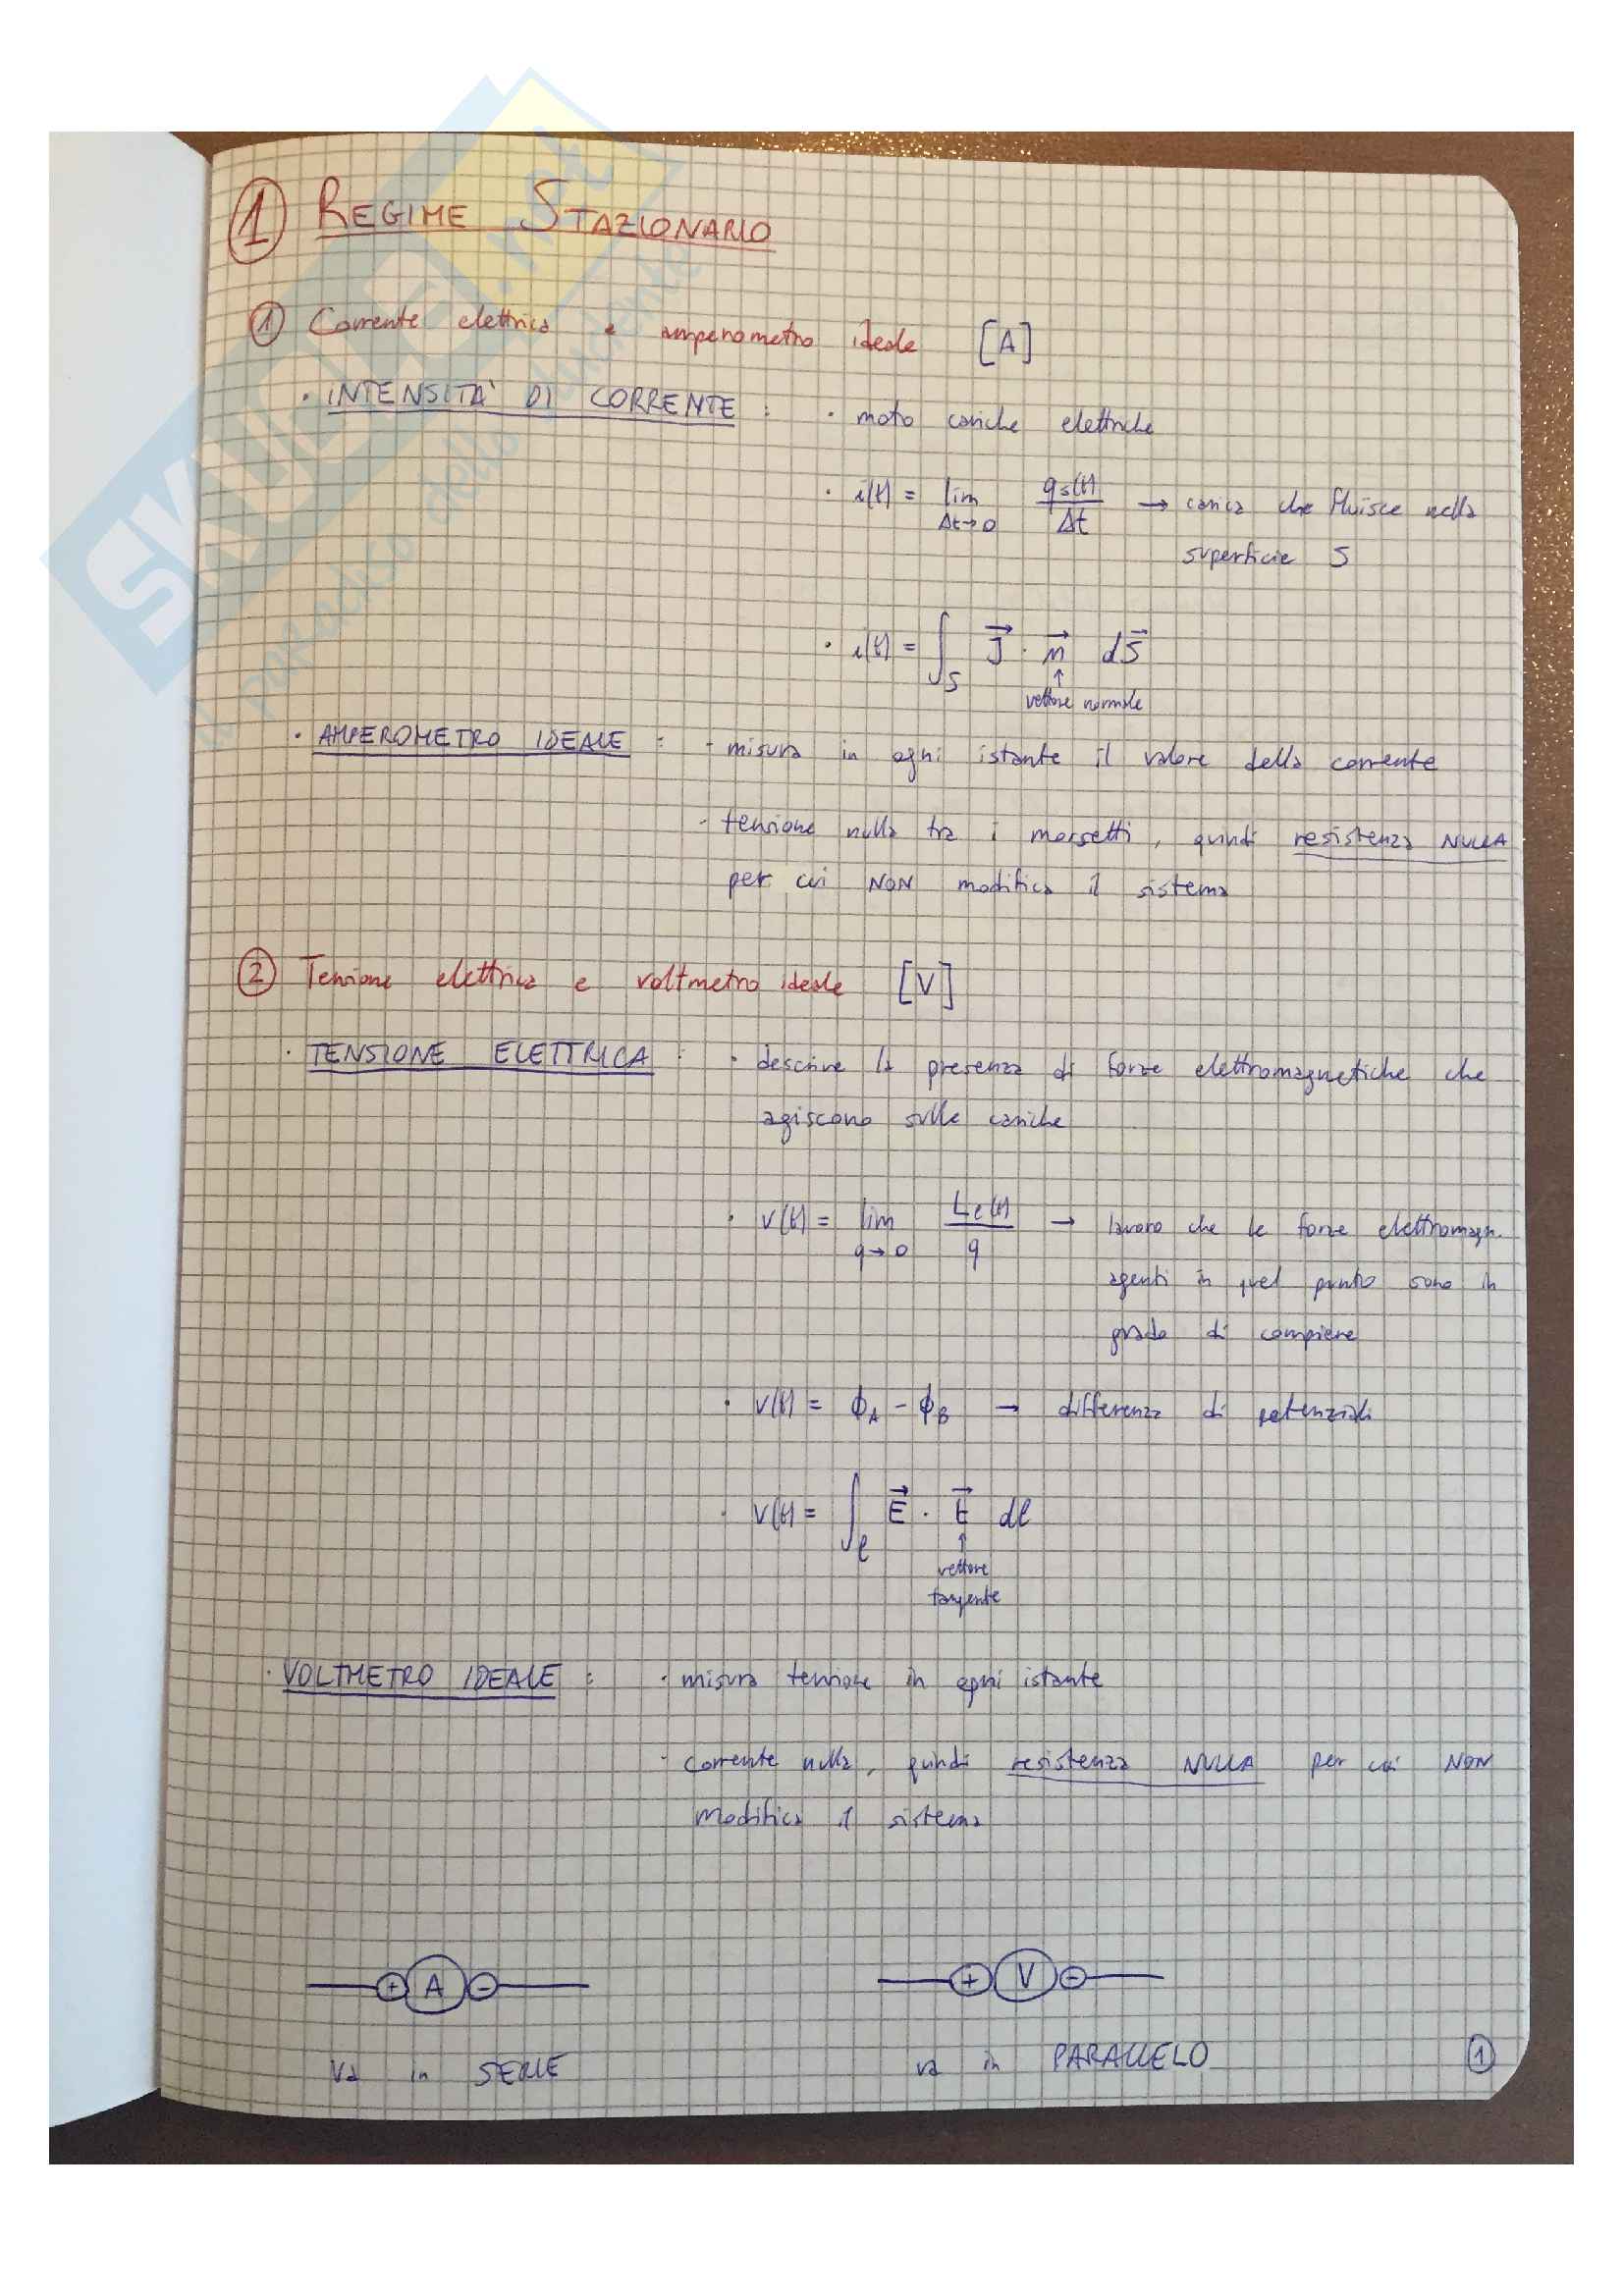 1 REGIME STAZIONARIO
1 Corrente elettrica e amperometro ideale [A]
· INTENSITA' DI CORRENTE : · moto cariche elettriche
· i(t) = lim Δt→0 qs(t)/Δt → carica che fluisce nella
superficie S
· i(t) = ∫S J⃗ · n⃗ dS⃗
↑
vettore normale
· AMPEROMETRO IDEALE : · misura in ogni istante il valore della corrente
· tensione nulla tra i morsetti, quindi resistenza NULLA
per cui NON modifica il sistema
2 Tensione elettrica e voltmetro ideale [V]
· TENSIONE ELETTRICA : · descrive la presenza di forze elettromagnetiche che
agiscono sulle cariche
· v(t) = lim q→0 Le(t)/q → lavoro che le forze elettromagn.
agenti in quel punto sono in
grado di compiere
· v(t) = ϕA - ϕB → differenza di potenziali
· v(t) = ∫ℓ E⃗ · t⃗ dℓ
↑
vettore
tangente
· VOLTMETRO IDEALE : · misura tensione in ogni istante
· corrente nulla, quindi resistenza NULLA per cui NON
modifica il sistema
+ A -
+ V -
va in SERIE
va in PARALLELO
1
SKUOLA.net
il paradiso dello studente